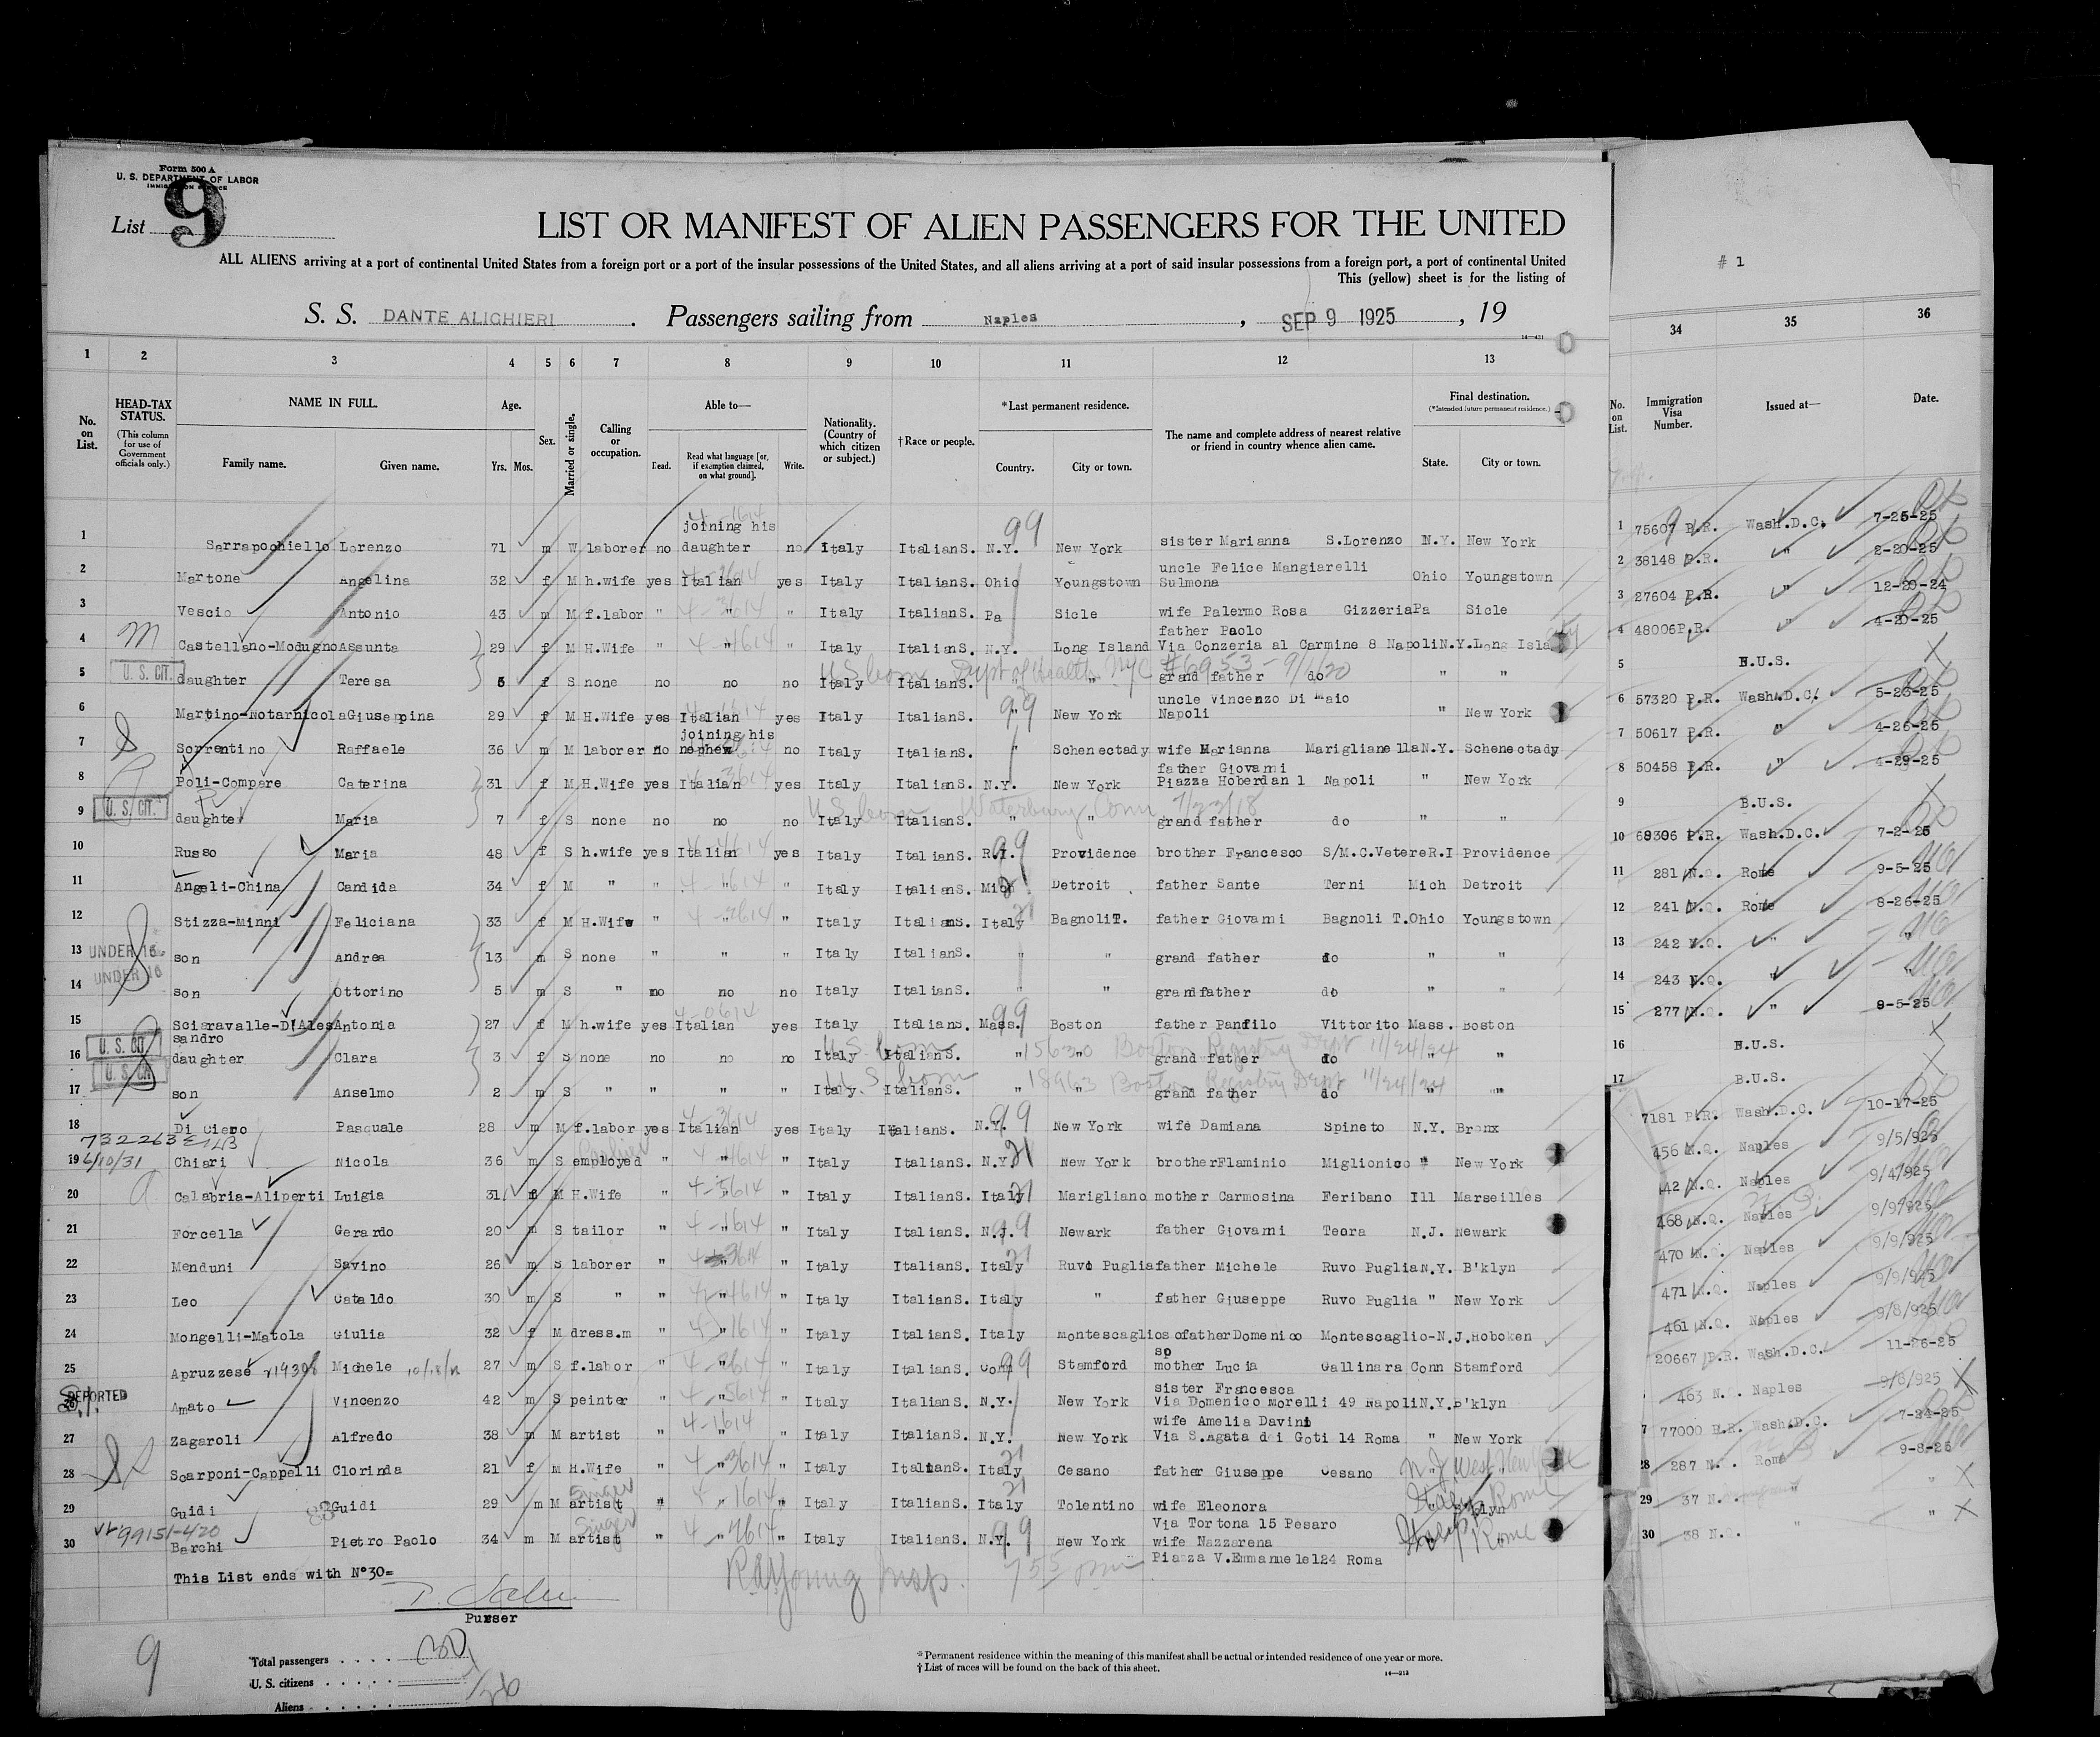 Form 500 A
U. S. DEPARTMENT OF LABOR
IMMIGRATION SERVICE
List 9
LIST OR MANIFEST OF ALIEN PASSENGERS FOR THE UNITED
ALL ALIENS arriving at a port of continental United States from a foreign port or a port of the insular possessions of the United States, and all aliens arriving at a port of said insular possessions from a foreign port, a port of continental United
This (yellow) sheet is for the listing of
# 1
S. S. DANTE ALIGHIERI. Passengers sailing from Naples, SEP 9 1925, 19
14—431
1 2 3 4 5 6 7 8 9 10 11 12 13 34 35 36
No. on List.
HEAD-TAX STATUS. (This column for use of Government officials only.)
NAME IN FULL.
Family name. Given name.
Age. Yrs. Mos.
Sex.
Married or single.
Calling or occupation.
Able to— Read. Read what language [or, if exemption claimed, on what ground]. Write.
Nationality. (Country of which citizen or subject.)
† Race or people.
*Last permanent residence. Country. City or town.
The name and complete address of nearest relative or friend in country whence alien came.
Final destination. (*Intended future permanent residence.) State. City or town.
No. on List.
Immigration Visa Number.
Issued at—
Date.
1 Sarrapochiello Lorenzo 71 m W laborer no joining his daughter no Italy ItalianS. N.Y. New York sister Marianna S.Lorenzo N.Y. New York 1 75607 P.R. Wash.D.C. 7-25-25
2 Martone Angelina 32 f M h.wife yes Italian yes Italy ItalianS. Ohio Youngstown uncle Felice Mangiarelli Sulmona Ohio Youngstown 2 38148 P.R. " 2-20-25
3 Vescio Antonio 43 m M f.labor " " " Italy ItalianS. Pa Sicle wife Palermo Rosa Gizzeria Pa Sicle 3 27604 P.R. " 12-20-24
4 M Castellano-Modugno Assunta 29 f M H.Wife " " " Italy ItalianS. N.Y. Long Island father Paolo Via Conzeria al Carmine 8 Napoli N.Y. Long Isla 4 48006 P.R. " 4-20-25
5 U. S. CIT. daughter Teresa 5 f S none no no no Italy ItalianS. " " grand father do " " 5 B.U.S.
US born Dept of Health NYC #6953 - 9/1/20
6 Martino-Notarnicola Giuseppina 29 f M H.Wife yes Italian yes Italy ItalianS. " New York uncle Vincenzo Di Maio Napoli " New York 6 57320 P.R. Wash.D.C. 5-23-25
7 Sorrentino Raffaele 36 m M laborer no joining his nephew no Italy ItalianS. " Schenectady wife Marianna Mariglianella N.Y. Schenectady 7 50617 P.R. " 4-26-25
8 Poli-Compare Caterina 31 f M H.Wife yes Italian yes Italy ItalianS. N.Y. New York father Giovanni Piazza Hoberdan 1 Napoli " New York 8 50458 P.R. " 4-29-25
9 U. S. CIT. daughter Maria 7 f S none no no no Italy ItalianS. " " grand father do " " 9 B.U.S.
US born Waterbury Conn 7/23/18
10 Russo Maria 48 f S h.wife yes Italian yes Italy ItalianS. R.I. Providence brother Francesco S/M.C.Vetere R.I Providence 10 68306 P.R. Wash.D.C. 7-2-25
11 Angeli-China Candida 34 f M " " " " Italy ItalianS. Mich Detroit father Sante Terni Mich Detroit 11 281 N.Q. Rome 9-5-25
12 Stizza-Minni Feliciana 33 f M H.Wife " " " Italy ItalianS. Italy BagnoliT. father Giovanni Bagnoli T. Ohio Youngstown 12 241 N.Q. Rome 8-26-25
13 UNDER 16 son Andrea 13 m S none " " " Italy ItalianS. " " grand father do " " 13 242 N.Q. " "
UNDER 16
14 son Ottorino 5 m S " no no no Italy ItalianS. " " grandfather do " " 14 243 N.Q. " "
15 Sciaravalle-D'Alessandro Antonia 27 f M h.wife yes Italian yes Italy ItalianS. Mass. Boston father Panfilo Vittorito Mass. Boston 15 277 N.Q. " 8-5-25
16 U. S. CIT daughter Clara 3 f S none no no no Italy ItalianS. " " grand father do " " 16 B.U.S.
U.S. born 15630 Boston Registry Dept 11/24/24
17 U. S. CIT son Anselmo 2 m S " " " " Italy. ItalianS. " " grand father do " " 17 B.U.S.
U S born 18963 Boston Registry Dept 11/24/24
18 Di Ciero Pasquale 28 m M f.labor yes Italian yes Italy ItalianS. N.Y. New York wife Damiana Spineto N.Y. Bronx 7181 P.R. Wash.D.C. 10-17-25
732263
19 6/10/31 Chiari Nicola 36 m S employed " " " Italy ItalianS. N.Y. New York brother Flaminio Miglionico " New York 456 N.Q. Naples 9/5/925
20 Calabria-Aliperti Luigia 31 f M H.Wife " " " Italy ItalianS. Italy Marigliano mother Carmosina Feribano Ill Marseilles 42 N.Q. Naples 9/4/925
21 Forcella Gerardo 20 m S tailor " " " Italy ItalianS. N.J. Newark father Giovanni Teora N.J. Newark 468 N.Q. Naples 9/9/925
22 Menduni Savino 26 m S laborer " " " Italy ItalianS. Italy Ruvo Puglia father Michele Ruvo Puglia N.Y. B'klyn 470 N.Q. Naples 9/9/925
23 Leo Cataldo 30 m S " " " " Italy ItalianS. Italy " father Giuseppe Ruvo Puglia " New York 471 N.Q. Naples 9/9/925
24 Mongelli-Matola Giulia 32 f M dress.m " " " Italy ItalianS. Italy Montescaglioso father Domenico Montescaglio-so N.J. Hoboken 461 N.Q. Naples 9/8/925
25 Apruzzese Michele 27 m S f.labor " " " Italy ItalianS. Conn Stamford mother Lucia Gallinara Conn Stamford 20667 P.R. Wash.D.C. 11-26-25
DEPORTED
26 Amato Vincenzo 42 m S peinter " " " Italy ItalianS. N.Y. New York sister Francesca Via Domenico Morelli 49 Napoli N.Y. B'klyn 463 N.Q. Naples 9/8/925
27 Zagaroli Alfredo 38 m M artist " " " Italy ItalianS. N.Y. New York wife Amelia Davini Via S.Agata dei Goti 14 Roma " New York 7 77000 P.R. Wash.D.C. 7-24-25
28 Scarponi-Cappelli Clorinda 21 f M H.Wife " " " Italy ItalianS. Italy Cesano father Giuseppe Cesano N J West New York 28 287 N. Roma 9-8-25
29 Guidi Guidi 29 m M artist Singer " " " Italy ItalianS. Italy Tolentino wife Eleonora Via Tortona 15 Pesaro " B'klyn Italy Rome 29 37 N. " "
99151-420
30 Barchi Pietro Paolo 34 m M artist Singer " " " Italy ItalianS. N.Y. New York wife Nazzarena Piazza V.Emmanuele124 Roma Italy Rome 30 38 N.Q. " "
This List ends with N°30=
RA Young Insp. 755 pm
Purser
9
Total passengers . . . . 30
U. S. citizens . . . . .
Aliens . . . . . .
*Permanent residence within the meaning of this manifest shall be actual or intended residence of one year or more.
† List of races will be found on the back of this sheet.
14—213